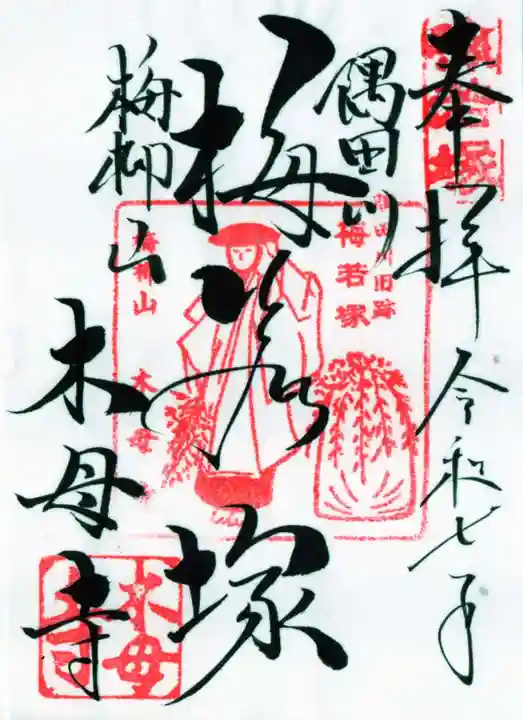 奉拝
令和七年
隅田川
梅若塚
梅柳山
木母寺
隅田川旧跡
梅若塚
梅柳山
木母
木母寺